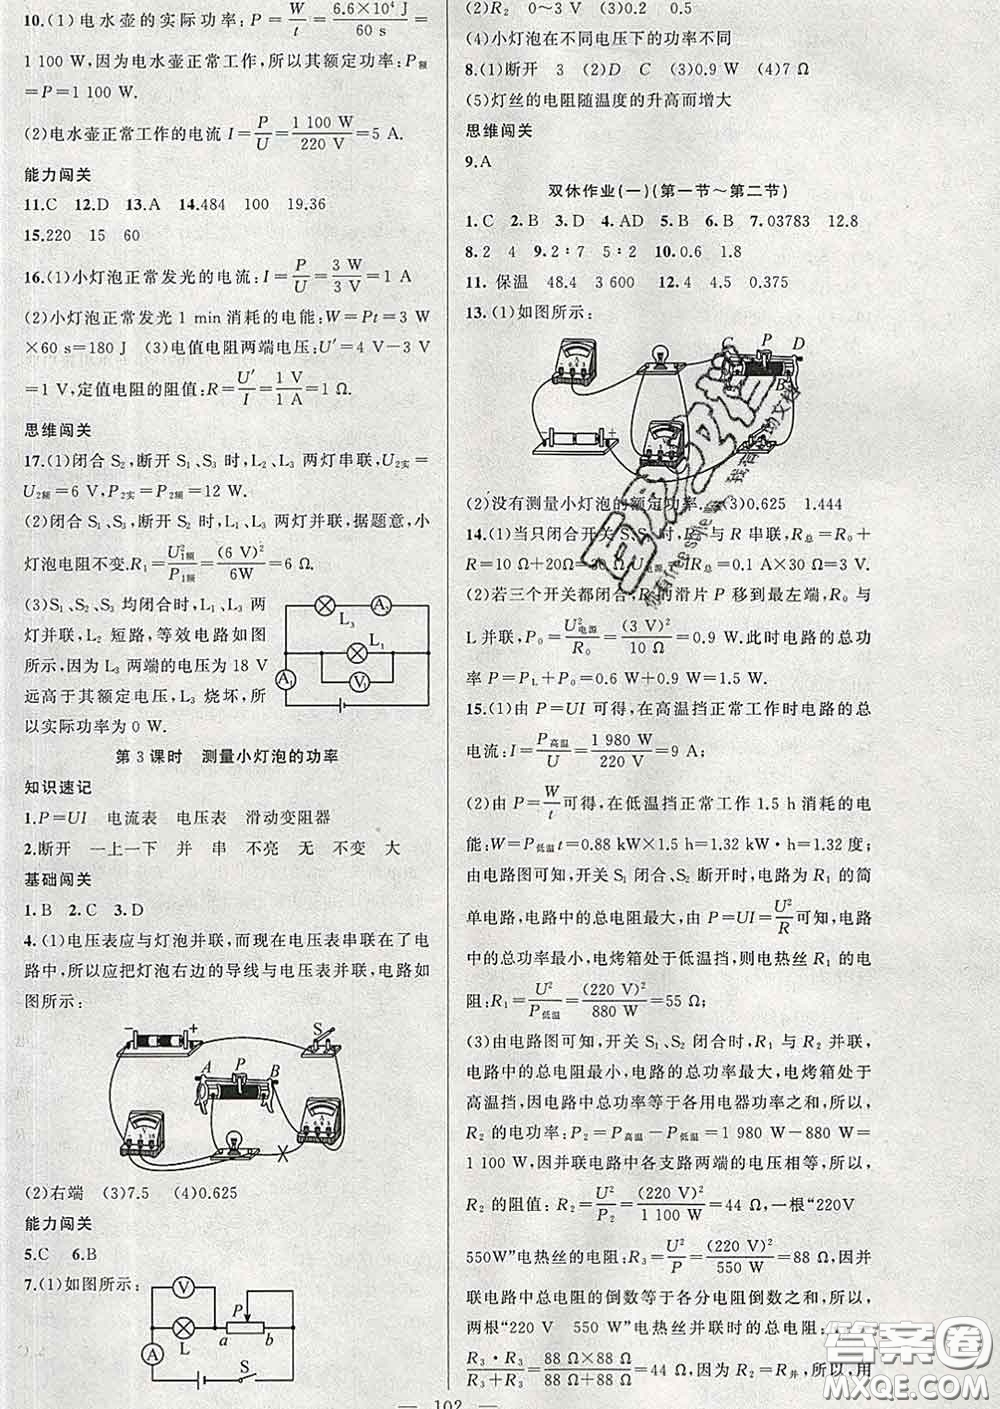 10.(1)电水壶的实际功率:P=W/t=6.6×10⁴ J/60 s=
1 100 W,因为电水壶正常工作,所以其额定功率:P额
=P=1 100 W.
(2)电水壶正常工作的电流 I=P/U=1 100 W/220 V=5 A.
能力闯关
11.C 12.D 13.A 14.484 100 19.36
15.220 15 60
16.(1)小灯泡正常发光的电流:I=P/U=3 W/3 V=1 A
(2)小灯泡正常发光 1 min 消耗的电能:W=Pt=3 W
×60 s=180 J (3)电值电阻两端电压:U′=4 V-3 V
=1 V,定值电阻的阻值:R=U′/I=1 V/1 A=1 Ω.
思维闯关
17.(1)闭合 S₂,断开 S₁、S₃ 时,L₂、L₃ 两灯串联,U₂实=
U₂额=6 V,P₂实=P₂额=12 W.
(2)闭合 S₁、S₃,断开 S₂ 时,L₁、L₃ 两灯并联,据题意,小
灯泡电阻不变.R₁=U²₁额/P₁额=(6 V)²/6W=6 Ω.
(3)S₁、S₂、S₃ 均闭合时,L₁、L₃ 两
灯并联,L₂ 短路,等效电路如图
所示,因为 L₃ 两端的电压为 18 V
远高于其额定电压,L₃ 烧坏,所
以实际功率为 0 W.
L₃ A₂
L₁
A₁ V₁
第 3 课时 测量小灯泡的功率
知识速记
1.P=UI 电流表 电压表 滑动变阻器
2.断开 一上一下 并 串 不亮 无 不变 大
基础闯关
1.B 2.C 3.D
4.(1)电压表应与灯泡并联,而现在电压表串联在了电
路中,所以应把灯泡右边的导线与电压表并联,电路如
图所示:
- + S
A P B
(2)右端 (3)7.5 (4)0.625
能力闯关
5.C 6.B
7.(1)如图所示:
V P
L a b
A S
(2)R₂ 0～3 V (3)0.2 0.5
(4)小灯泡在不同电压下的功率不同
8.(1)断开 3 (2)D C (3)0.9 W (4)7 Ω
(5)灯丝的电阻随温度的升高而增大
思维闯关
9.A
双休作业(一)(第一节～第二节)
1.C 2.B 3.D 4.AD 5.B 6.B 7.03783 12.8
8.2 4 9.2:7 5:2 10.0.6 1.8
11.保温 48.4 3 600 12.4 4.5 0.375
13.(1)如图所示:
C P D
B
- +
(2)没有测量小灯泡的额定功率. (3)0.625 1.444
14.(1)当只闭合开关 S、S₁ 时,R₀ 与 R 串联,R总=R₀+
R=10 Ω+20Ω=30 Ω,U电源=IR总=0.1 A×30 Ω=3 V.
(2)若三个开关都闭合,R的滑片 P 移到最左端,R₀ 与
L 并联,P₀=U²电源/R₀=(3 V)²/10 Ω=0.9 W.此时电路的总功
率 P=PL+P₀=0.6 W+0.9 W=1.5 W.
15.(1)由 P=UI 可得,在高温挡正常工作时电路的总
电流:I=P高温/U=1 980 W/220 V=9 A;
(2)由 P=W/t可得,在低温挡正常工作 1.5 h 消耗的电
能:W=P低温t=0.88 kW×1.5 h=1.32 kW·h=1.32 度;
由电路图可知,开关 S₁ 闭合、S₂ 断开时,电路为 R₁ 的简
单电路,电路中的总电阻最大,由 P=UI=U²/R可知,电路
中的总功率最小,电烤箱处于低温挡,则电热丝 R₁ 的电
阻:R₁=U²/P低温=(220 V)²/880 W=55 Ω;
(3)由电路图可知,开关 S₁、S₂ 闭合时,R₁ 与 R₂ 并联,
电路中的总电阻最小,电路的总功率最大,电烤箱处于
高温挡,因电路中总功率等于各用电器功率之和,所以,
R₂ 的电功率:P₂=P高温-P低温=1 980 W-880 W=
1 100 W,因并联电路中各支路两端的电压相等,所以,
R₂ 的阻值:R₂=U²/P₂=(220 V)²/1 100 W=44 Ω,一根“220V
550W”电热丝的电阻:R₃=U²/P=(220 V)²/550 W=88 Ω,因并
联电路中总电阻的倒数等于各分电阻倒数之和,所以,
两根“220 V 550 W”电热丝并联时的总电阻:
R₃·R₃/R₃+R₃=88 Ω×88 Ω/88 Ω+88 Ω=44 Ω,因为 R₂=R并,所以,用
— 102 —
答案圈
MXQE.COM